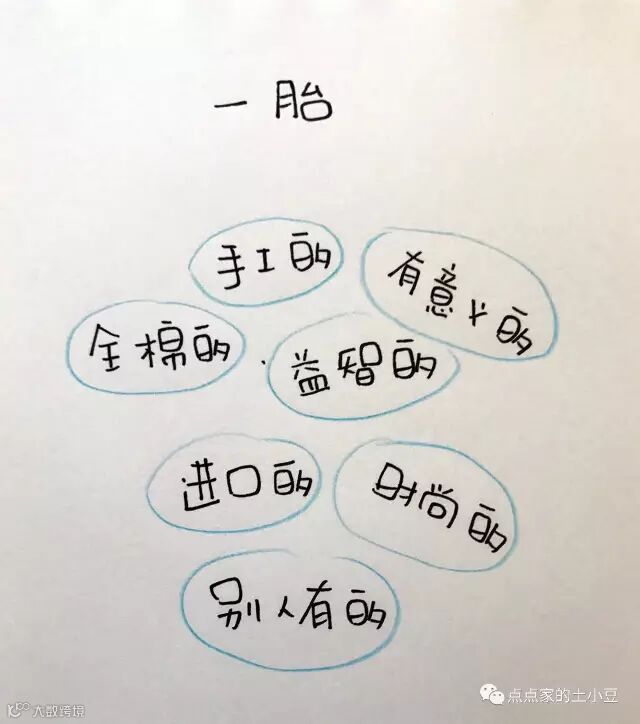 一胎
手工的
有意义的
全棉的
益智的
进口的
时尚的
别人有的
点点家的土小豆
大数跨境